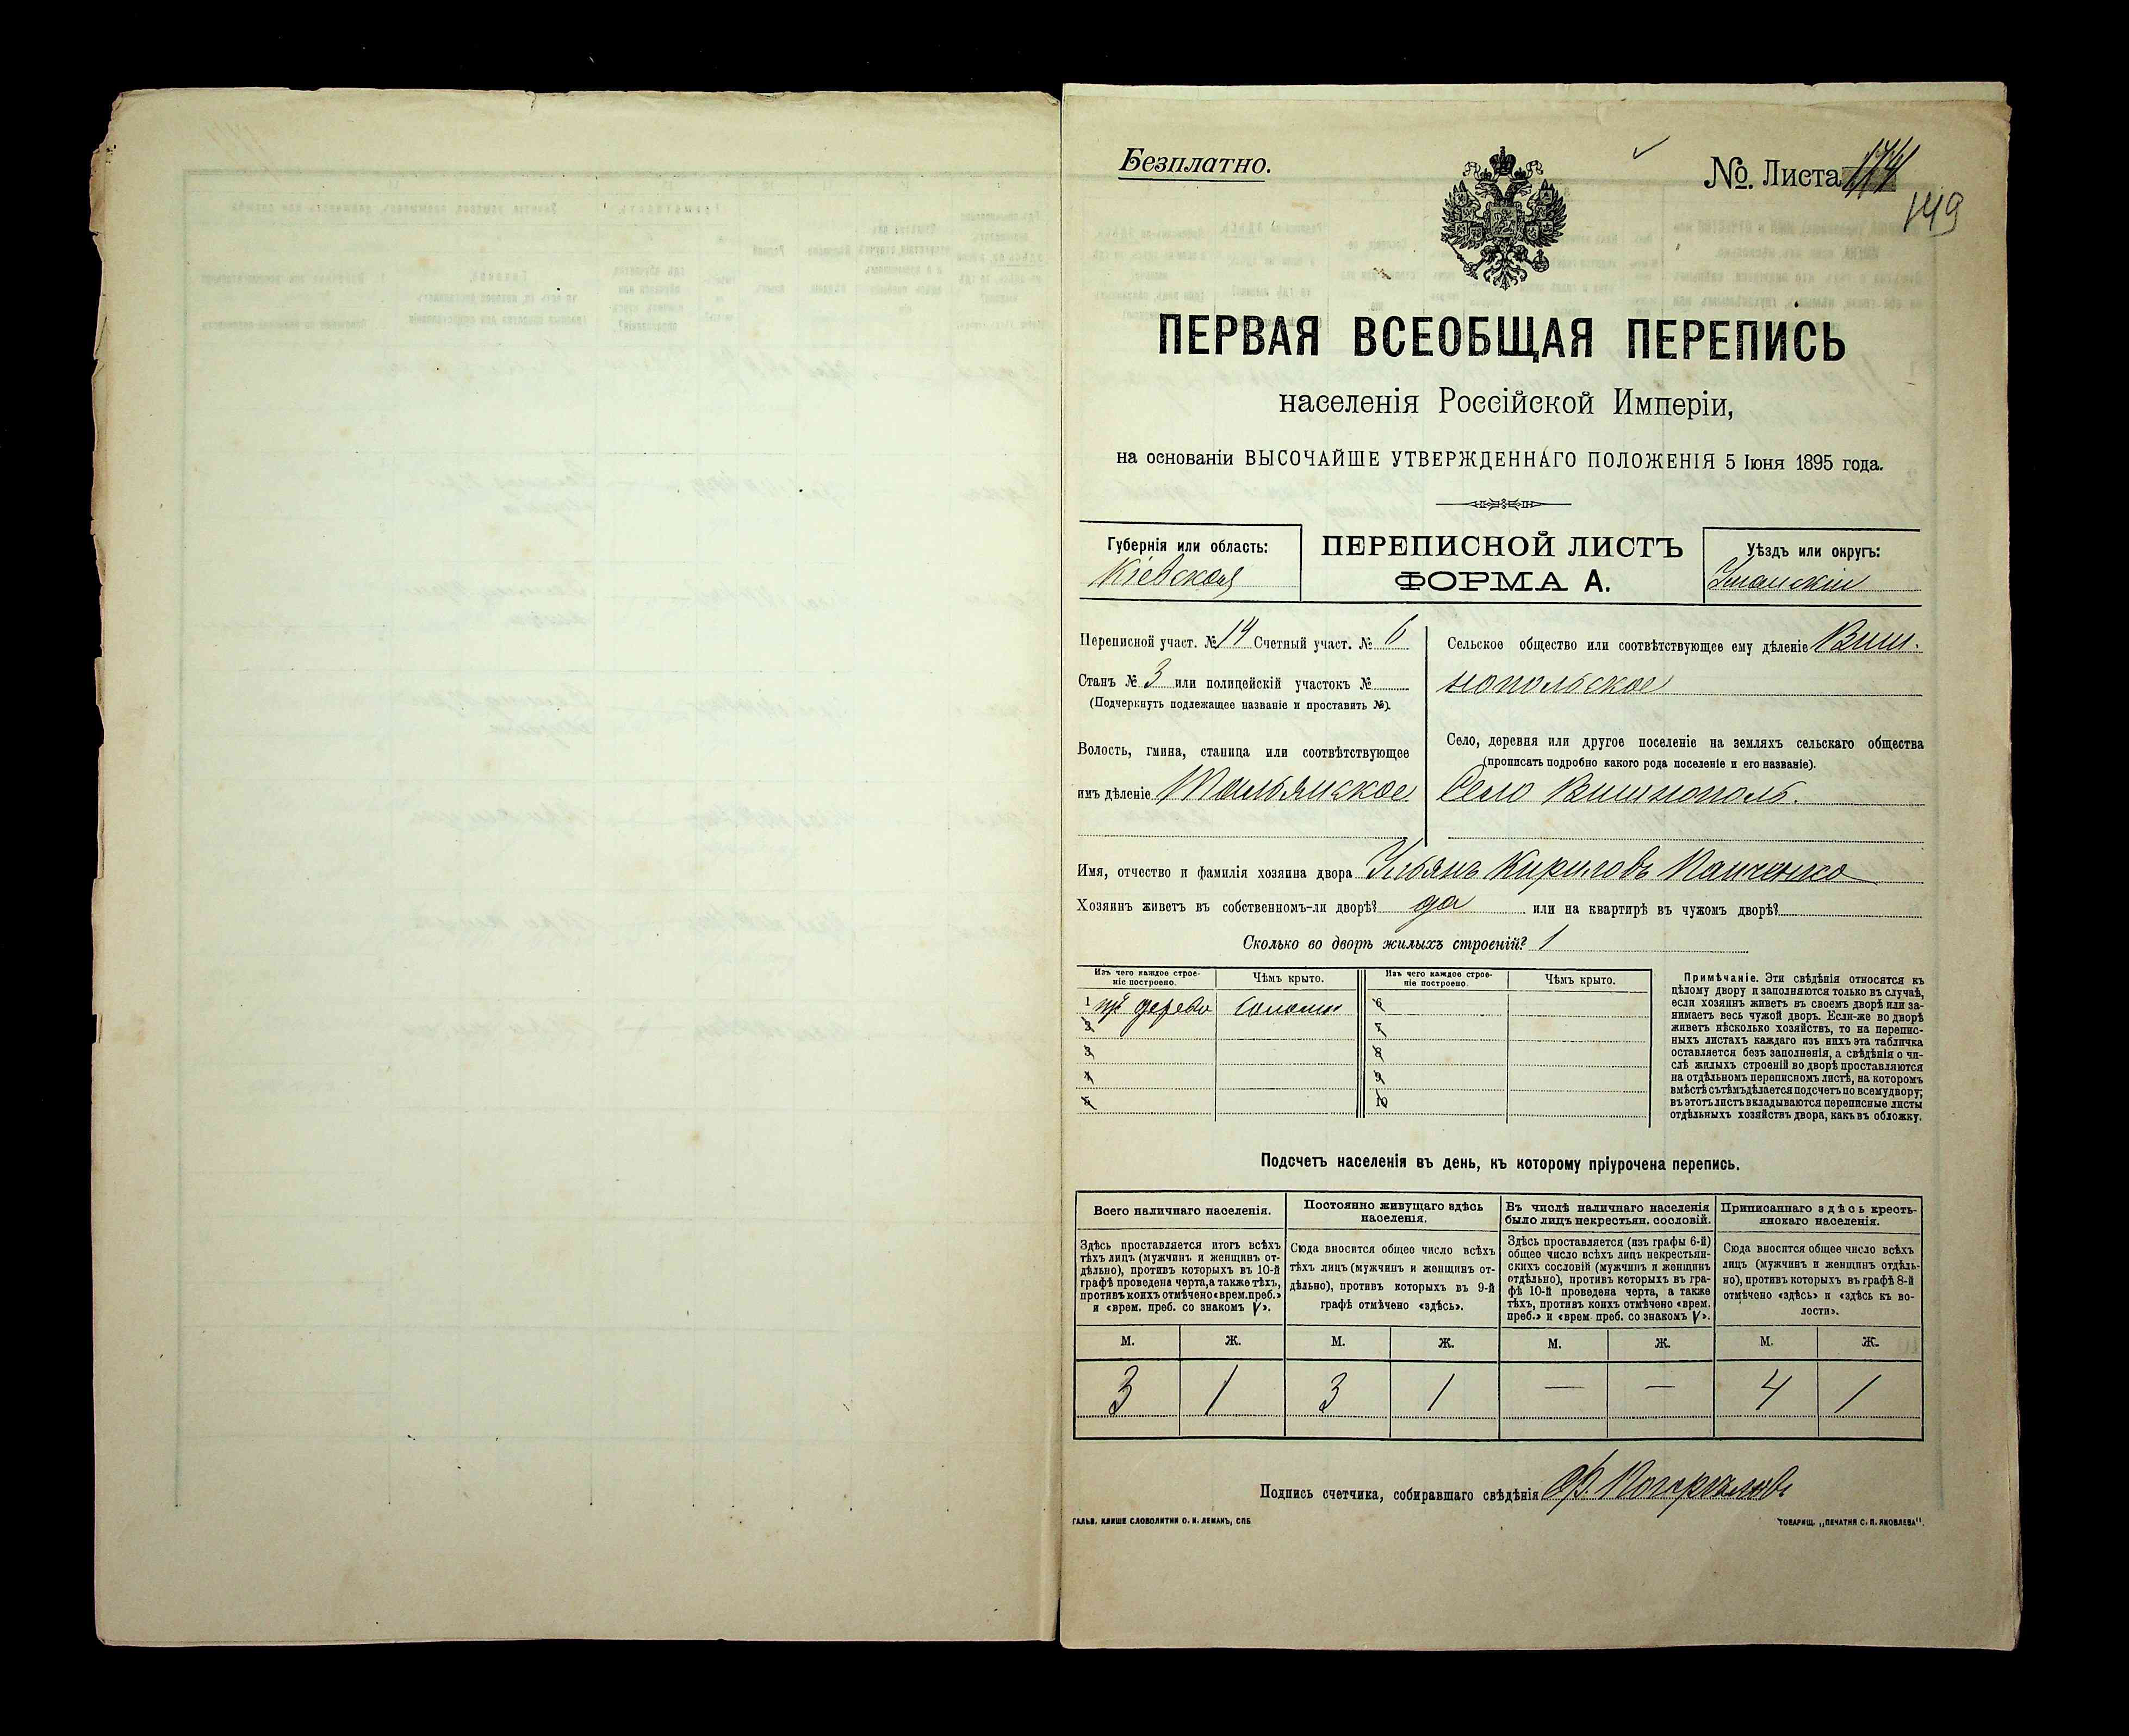 Безплатно.
№. Листа
149
ПЕРВАЯ ВСЕОБЩАЯ ПЕРЕПИСЬ
населенія Россійской Имперіи,
на основаніи ВЫСОЧАЙШЕ УТВЕРЖДЕННАГО ПОЛОЖЕНІЯ 5 Іюня 1895 года.
Губернія или область:
Кіевская
ПЕРЕПИСНОЙ ЛИСТЪ
ФОРМА А.
Уѣздъ или округъ:
Уманскій
Переписной участ. № 14 Счетный участ. № 6
Станъ № 3 или полицейскій участокъ №
(Подчеркнуть подлежащее названіе и проставить №).
Волость, гмина, станица или соотвѣтствующее
имъ дѣленіе Тальянское
Сельское общество или соотвѣтствующее ему дѣленіе Виш-
нопольское
Село, деревня или другое поселеніе на земляхъ сельскаго общества
(прописать подробно какого рода поселеніе и его названіе).
Село Вишнополь.
Имя, отчество и фамилія хозяина двора Ульянъ Кириловъ Панченко
Хозяинъ живетъ въ собственномъ-ли дворѣ? да или на квартирѣ въ чужомъ дворѣ?
Сколько во дворѣ жилыхъ строеній? 1
Изъ чего каждое строе-
ніе построено.
Чѣмъ крыто.
Изъ чего каждое строе-
ніе построено.
Чѣмъ крыто.
1 дерева
6
2
7
3
8
4
9
5
10
Примѣчаніе. Эти свѣдѣнія относятся къ
цѣлому двору и заполняются только въ случаѣ,
если хозяинъ живетъ въ своемъ дворѣ или за-
нимаетъ весь чужой дворъ. Если-же во дворѣ
живетъ нѣсколько хозяйствъ, то на перепис-
ныхъ листахъ каждаго изъ нихъ эта табличка
оставляется безъ заполненія, а свѣдѣнія о чи-
слѣ жилыхъ строеній во дворѣ проставляются
на отдѣльномъ переписномъ листѣ, на которомъ
вмѣстѣ съ тѣмъ дѣлается подсчетъ по всему двору;
въ этотъ листъ вкладываются переписные листы
отдѣльныхъ хозяйствъ двора, какъ въ обложку.
Подсчетъ населенія въ день, къ которому пріурочена перепись.
Всего наличнаго населенія.
Постоянно живущаго здѣсь
населенія.
Въ числѣ наличнаго населенія
было лицъ некрестьян. сословій.
Приписаннаго здѣсь кресть-
янскаго населенія.
Здѣсь проставляется итогъ всѣхъ
тѣхъ лицъ (мужчинъ и женщинъ от-
дѣльно), противъ которыхъ въ 10-й
графѣ проведена черта, а также тѣхъ,
противъ коихъ отмѣчено «врем. преб.»
и «врем. преб. со знакомъ V».
Сюда вносится общее число всѣхъ
тѣхъ лицъ (мужчинъ и женщинъ от-
дѣльно), противъ которыхъ въ 9-й
графѣ отмѣчено «здѣсь».
Здѣсь проставляется (изъ графы 6-й)
общее число всѣхъ лицъ некрестьян-
скихъ сословій (мужчинъ и женщинъ
отдѣльно), противъ которыхъ въ гра-
фѣ 10-й проведена черта, а также
тѣхъ, противъ коихъ отмѣчено «врем.
преб.» и «врем. преб. со знакомъ V».
Сюда вносится общее число всѣхъ
лицъ (мужчинъ и женщинъ отдѣль-
но), противъ которыхъ въ графѣ 8-й
отмѣчено «здѣсь» и «здѣсь къ во-
лости».
М. Ж. М. Ж. М. Ж. М. Ж.
3 1 3 1 — — 4 1
Подпись счетчика, собиравшаго свѣдѣнія
ГАЛЬВ. КЛИШЕ СЛОВОЛИТНИ О. И. ЛЕМАНЪ, СПБ
ТОВАРИЩ. „ПЕЧАТНЯ С. П. ЯКОВЛЕВА".